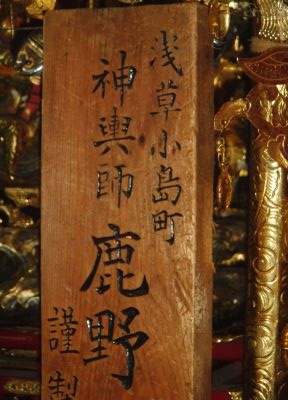 浅草小島町
神輿師
鹿野
謹製